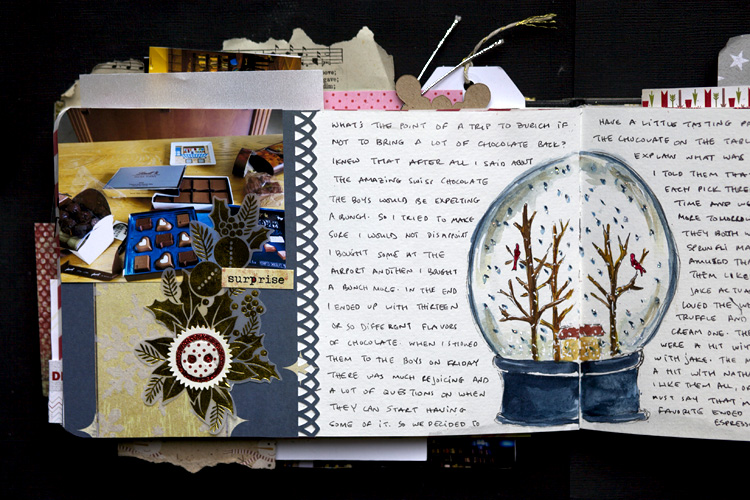 surprise
WHAT'S THE POINT OF A TRIP TO ZURICH IF
NOT TO BRING A LOT OF CHOCOLATE BACK?
I KNEW THAT AFTER ALL I SAID ABOUT
THE AMAZING SWISS CHOCOLATE
THE BOYS WOULD BE EXPECTING
A BUNCH. SO I TRIED TO MAKE
SURE I WOULD NOT DISAPPOINT
I BOUGHT SOME AT THE
AIRPORT AND THEN I BOUGHT
A BUNCH MORE. IN THE END
I ENDED UP WITH THIRTEEN
OR SO DIFFERENT FLAVORS
OF CHOCOLATE. WHEN I SHOWED
THEM TO THE BOYS ON FRIDAY
THERE WAS MUCH REJOICING AND
A LOT OF QUESTIONS ON WHEN
THEY CAN START HAVING
SOME OF IT. SO WE DECIDED TO
HAVE A LITTLE TASTING PA
THE CHOCOLATE ON THE TABL
EXPLAIN WHAT WAS
I TOLD THEM THAT
EACH PICK THREE
TIME AND WE
MORE TOMORRO
THEY BOTH W
SPRUNGLI MA
AMUSED THA
THEM LIKE
JAKE ACTUA
LOVED THE
TRUFFLE AND
CREAM ONE. TH
WERE A HIT WIT
WITH JAKE. THE
A HIT WITH NATH
I LIKE THEM ALL, O
MUST SAY THAT M
FAVORITE ENDED
ESPRESS